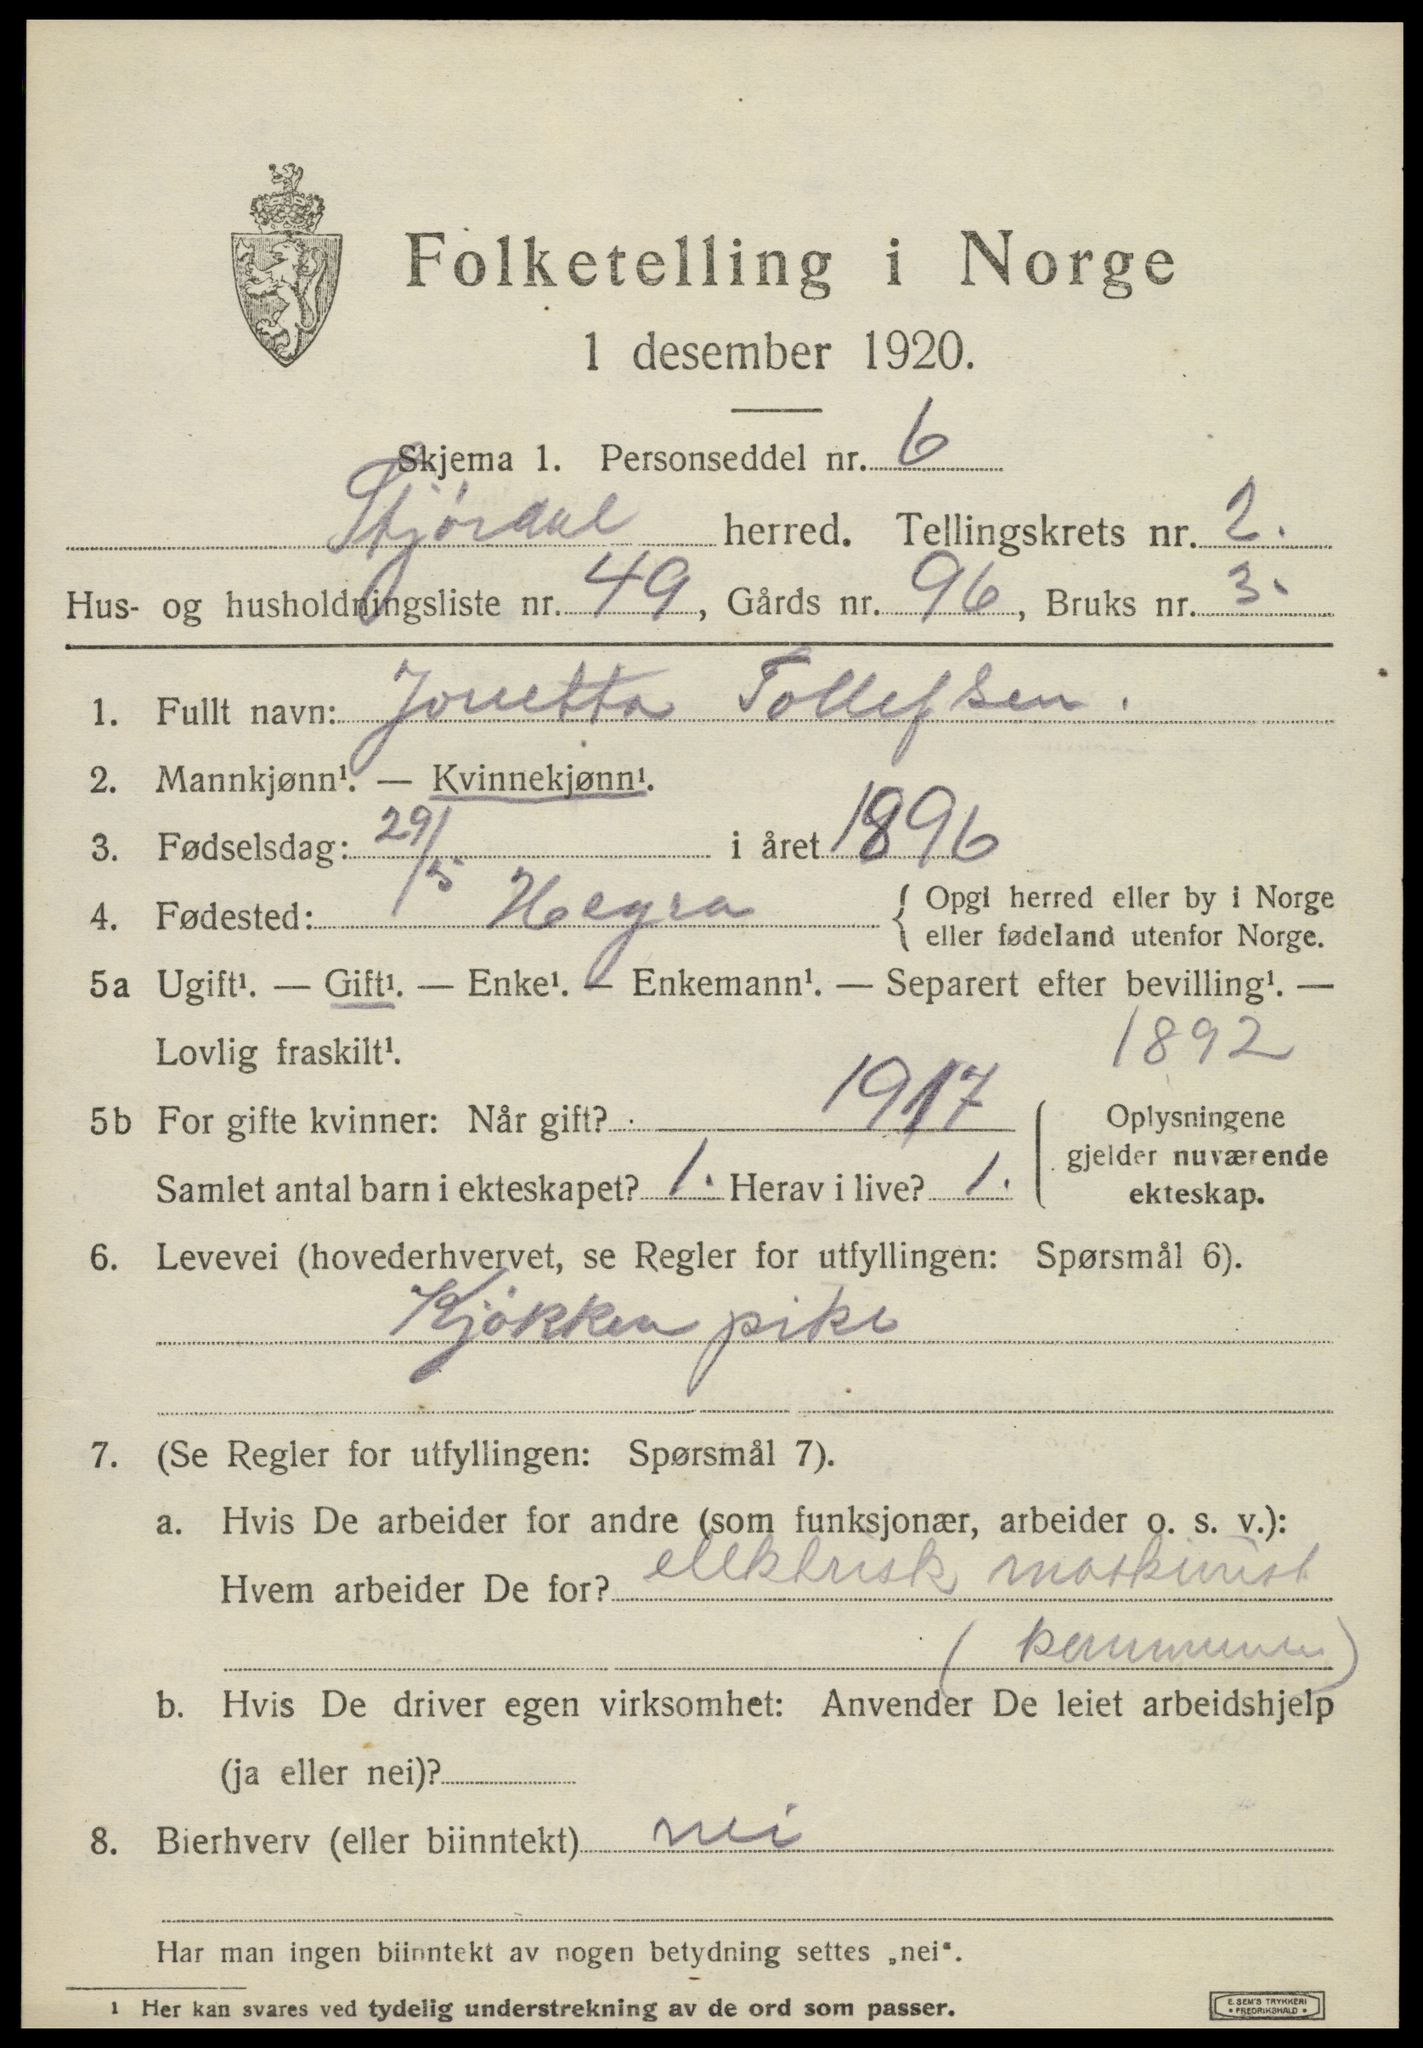 Folketelling i Norge
1 desember 1920.
Skjema 1. Personseddel nr. 6
Stjørdal herred. Tellingskrets nr. 2.
Hus- og husholdningsliste nr. 49, Gårds nr. 96, Bruks nr. 3.
1. Fullt navn: Jonetta Tollefsen.
2. Mannkjønn¹. — Kvinnekjønn¹.
3. Fødselsdag: 29/5 i året 1896
4. Fødested: Hegra { Opgi herred eller by i Norge
eller fødeland utenfor Norge.
5a Ugift¹. — Gift¹. — Enke¹. — Enkemann¹. — Separert efter bevilling¹. —
Lovlig fraskilt¹. 1892
5b For gifte kvinner: Når gift? 1917
Samlet antal barn i ekteskapet? 1. Herav i live? 1.
Oplysningene
gjelder nuværende
ekteskap.
6. Levevei (hovederhvervet, se Regler for utfyllingen: Spørsmål 6).
Kjøkken pike
7. (Se Regler for utfyllingen: Spørsmål 7).
a. Hvis De arbeider for andre (som funksjonær, arbeider o. s. v.):
Hvem arbeider De for? elektrisk maskinist
(kommunen)
b. Hvis De driver egen virksomhet: Anvender De leiet arbeidshjelp
(ja eller nei)?
8. Bierhverv (eller biinntekt) nei
Har man ingen biinntekt av nogen betydning settes „nei“.
1 Her kan svares ved tydelig understrekning av de ord som passer.
E. SEM'S TRYKKERI
• FREDRIKSHALD •